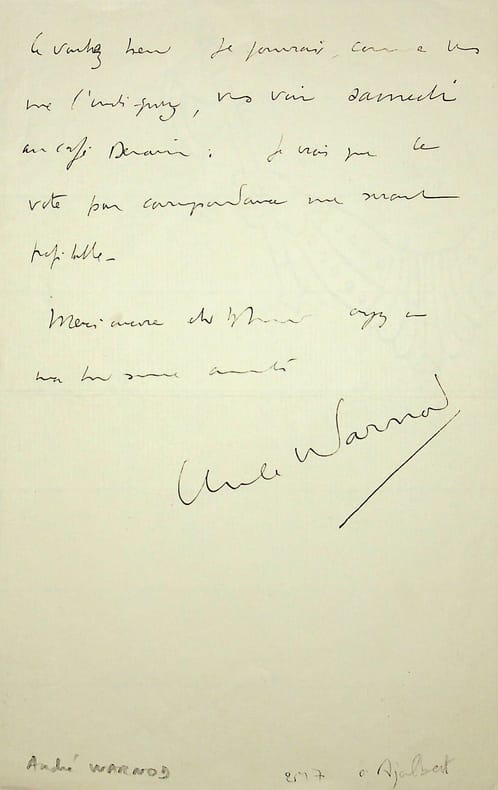 le voulez bien je pourrais, comme vous
me l'indiquez, vous voir samedi
au café : Je crois que le
vote par correspondance me serait
profitable_
Merci encore cher ayez en
ma amitié
André Warnod
André WARNOD
à Ajalbert